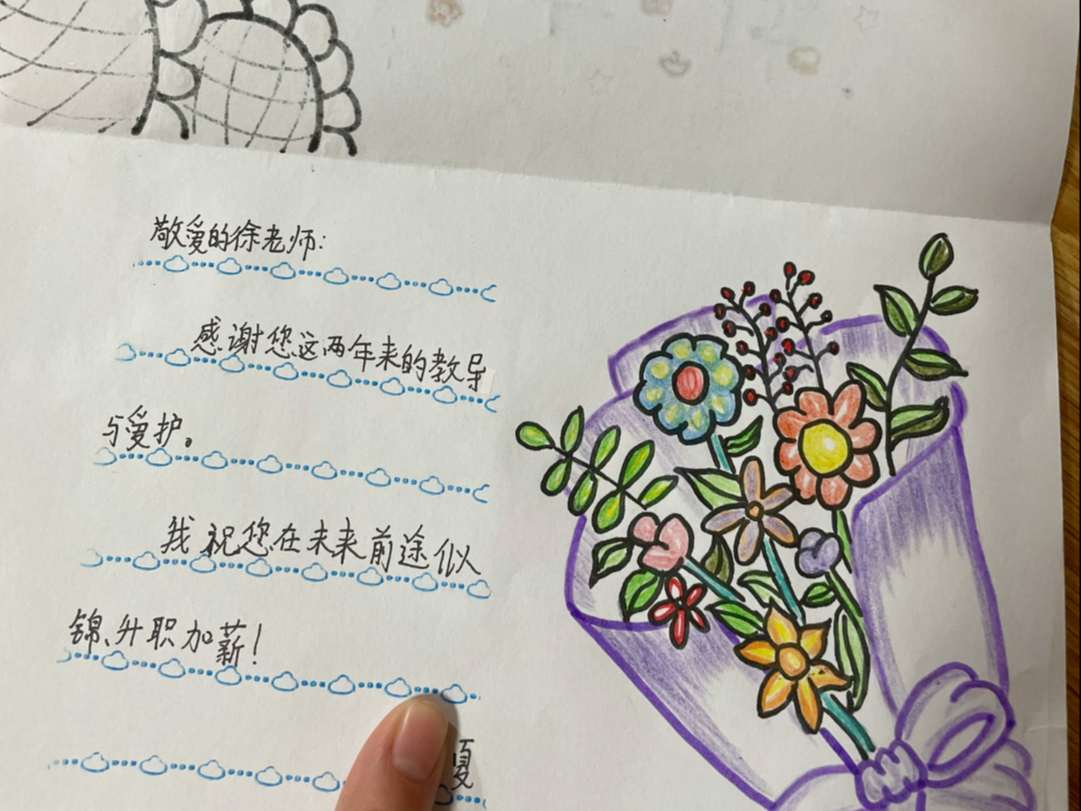 敬爱的徐老师：
感谢您这两年来的教导
与爱护。
我祝您在未来前途似
锦、升职加薪！
夏